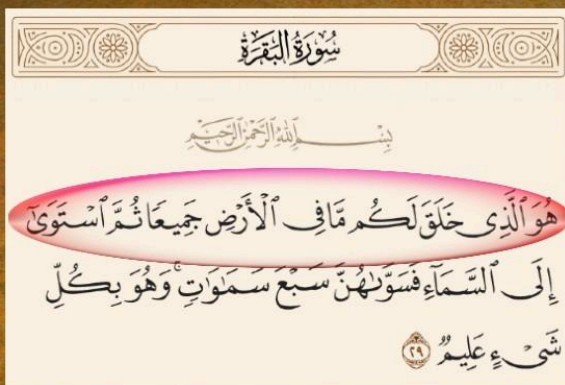 سُورَةُ البَقَرَةِ
بِسْمِ اللَّهِ الرَّحْمَٰنِ الرَّحِيمِ
هُوَ ٱلَّذِى خَلَقَ لَكُم مَّا فِى ٱلْأَرْضِ جَمِيعًا ثُمَّ ٱسْتَوَىٰٓ
إِلَى ٱلسَّمَآءِ فَسَوَّىٰهُنَّ سَبْعَ سَمَٰوَٰتٍۚ وَهُوَ بِكُلِّ
شَىْءٍ عَلِيمٌ ٢٩